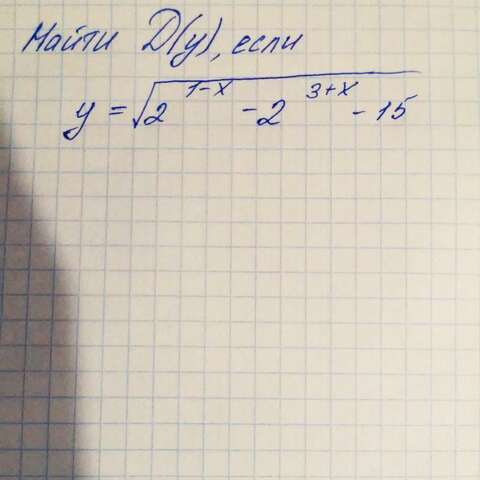 Найти D(y), если
y = √2^{1-x} - 2^{3+x} - 15